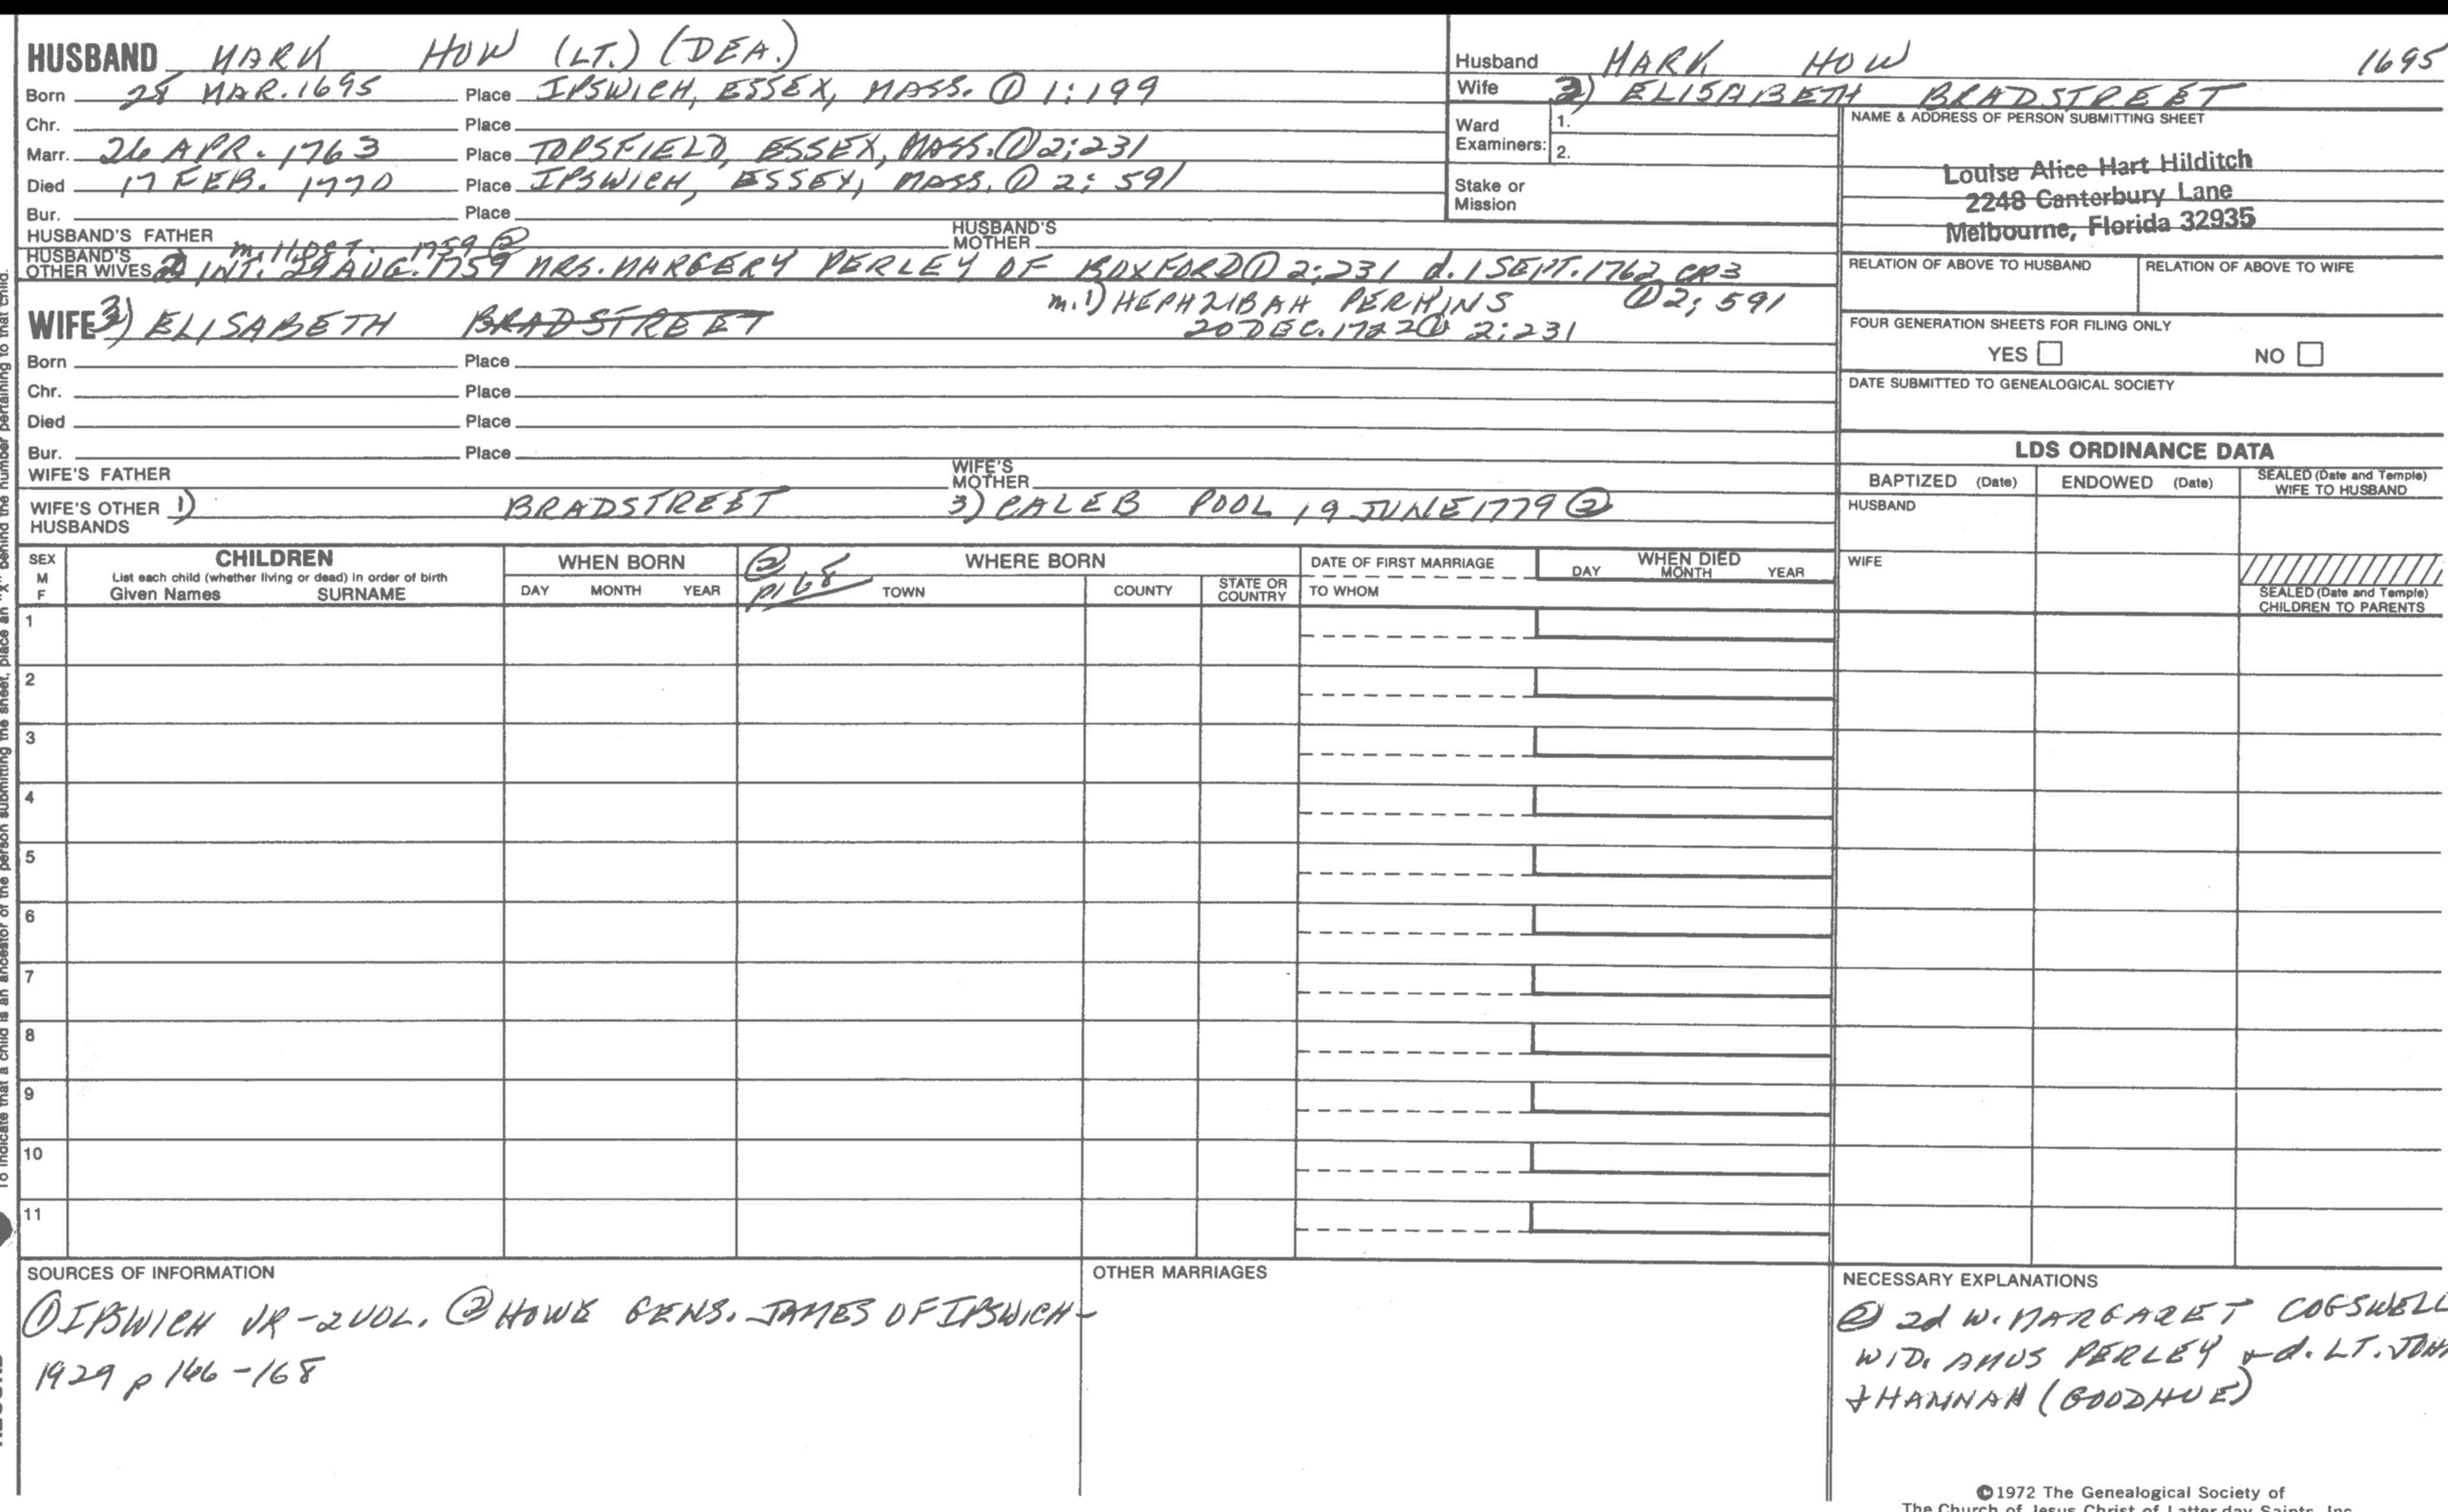 HUSBAND MARK HOW (LT.) (DEA.)
Born 28 MAR. 1695 Place IPSWICH, ESSEX, MASS. ① 1:199
Chr. Place
Marr. 26 APR. 1763 Place TOPSFIELD, ESSEX, MASS. ① 2:231
Died 17 FEB. 1770 Place IPSWICH, ESSEX, MASS. ① 2:591
Bur. Place
HUSBAND'S FATHER HUSBAND'S MOTHER
m. 11 OCT. 1759 ②
HUSBAND'S OTHER WIVES 2) INT. 29 AUG. 1759 MRS. MARGERY PERLEY OF BOXFORD ① 2:231 d. 1 SEPT. 1762 CR3
① 2:591
m. 1) HEPHZIBAH PERKINS
20 DEC. 1722 ① 2:231
WIFE 3) ELISABETH BRADSTREET
Born Place
Chr. Place
Died Place
Bur. Place
WIFE'S FATHER WIFE'S MOTHER
WIFE'S OTHER HUSBANDS 1) BRADSTREET 3) CALEB POOL 19 JUNE 1779 ②
Husband MARK HOW 1695
Wife 3) ELISABETH BRADSTREET
Ward Examiners: 1.
2.
Stake or Mission
NAME & ADDRESS OF PERSON SUBMITTING SHEET
Louise Alice Hart Hilditch
2248 Canterbury Lane
Melbourne, Florida 32935
RELATION OF ABOVE TO HUSBAND RELATION OF ABOVE TO WIFE
FOUR GENERATION SHEETS FOR FILING ONLY
YES NO
DATE SUBMITTED TO GENEALOGICAL SOCIETY
LDS ORDINANCE DATA
BAPTIZED (Date) ENDOWED (Date) SEALED (Date and Temple) WIFE TO HUSBAND
HUSBAND
WIFE
SEALED (Date and Temple) CHILDREN TO PARENTS
SEX M F
CHILDREN
List each child (whether living or dead) in order of birth
Given Names SURNAME
WHEN BORN
DAY MONTH YEAR
② p168
WHERE BORN
TOWN COUNTY STATE OR COUNTRY
DATE OF FIRST MARRIAGE
TO WHOM
WHEN DIED
DAY MONTH YEAR
1
2
3
4
5
6
7
8
9
10
11
To indicate that a child is an ancestor of the person submitting the sheet, place an "X" behind the number pertaining to that child.
SOURCES OF INFORMATION
① IPSWICH VR - 2 VOL. ② HOWE GENS. JAMES OF IPSWICH -
1929 p 166-168
OTHER MARRIAGES
NECESSARY EXPLANATIONS
② 2d W. MARGARET COGSWELL
WID. AMOS PERLEY + d. LT. JOHN
+ HANNAH (GOODHUE)
©1972 The Genealogical Society of
The Church of Jesus Christ of Latter-day Saints, Inc.